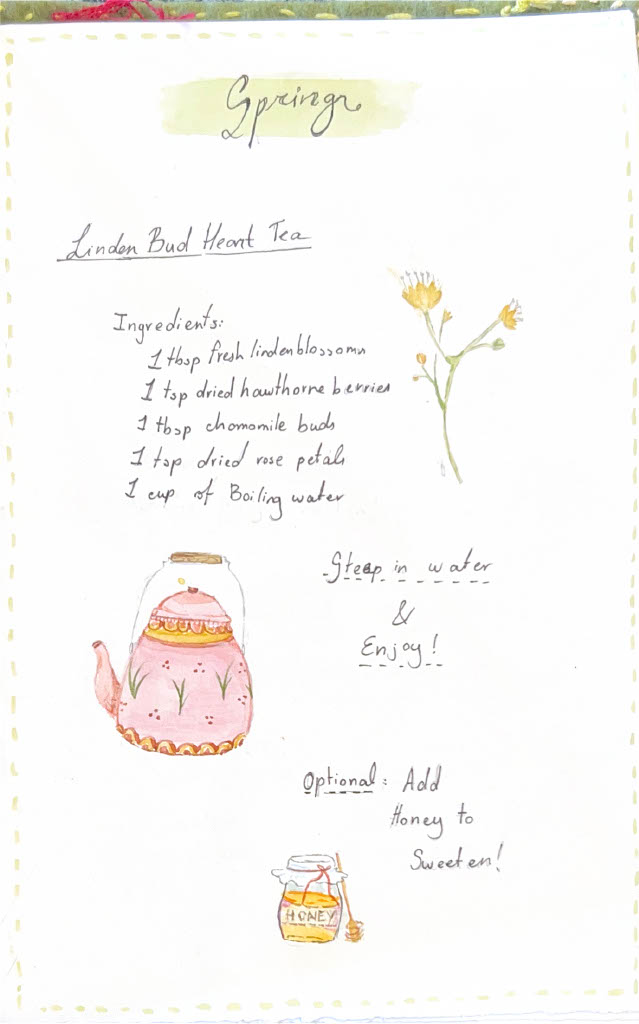 Spring
Linden Bud Heart Tea
Ingredients:
1 tbsp fresh linden blossoms
1 tsp dried hawthorne berries
1 tbsp chamomile buds
1 tsp dried rose petals
1 cup of Boiling water
Steep in water
&
Enjoy!
Optional: Add
Honey to
Sweeten!
HONEY